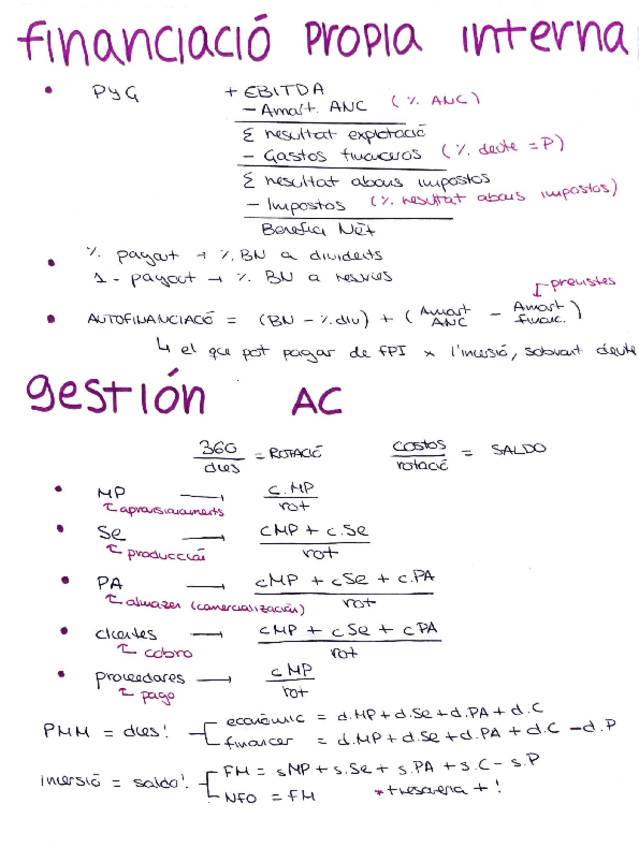 financiació propia interna
• PyG + EBITDA
- Amort. ANC (% ANC)
Σ resultat explotació
- Gastos financeros (% deute = P)
Σ resultat abans impostos
- Impostos (% resultat abans impostos)
Benefici Nèt
• % payout → % BN a dividents
1 - payout → % BN a reserves
previstes
• AUTOFINANCIACÓ = (BN - % div) + (Amort ANC - Amort financ.)
↳ el que pot pagar de FPI x l'inversió, sobrant deute
gestión AC
360 / dies = ROTACIÓ costos / rotació = SALDO
• MP → c.MP / rot
aprovisionaments
• Se → cMP + c.Se / rot
producción
• PA → cMP + cSe + c.PA / rot
almazen (comercialización)
• clientes → cMP + cSe + cPA / rot
cobro
• proveedores → cMP / rot
pago
PMM = dies! económic = d.MP + d.Se + d.PA + d.C
financer = d.MP + d.Se + d.PA + d.C - d.P
inversió = saldo! FM = sMP + s.Se + s.PA + s.C - s.P
NFO = FM * tresoreria + !